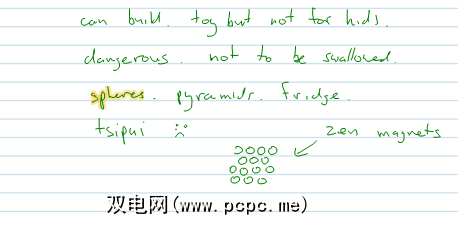 can build. toy but not for kids.
dangerous. not to be swallowed.
spheres. pyramids. fridge.
tsipui
zen magnets
双电网(www.pcpc.me)